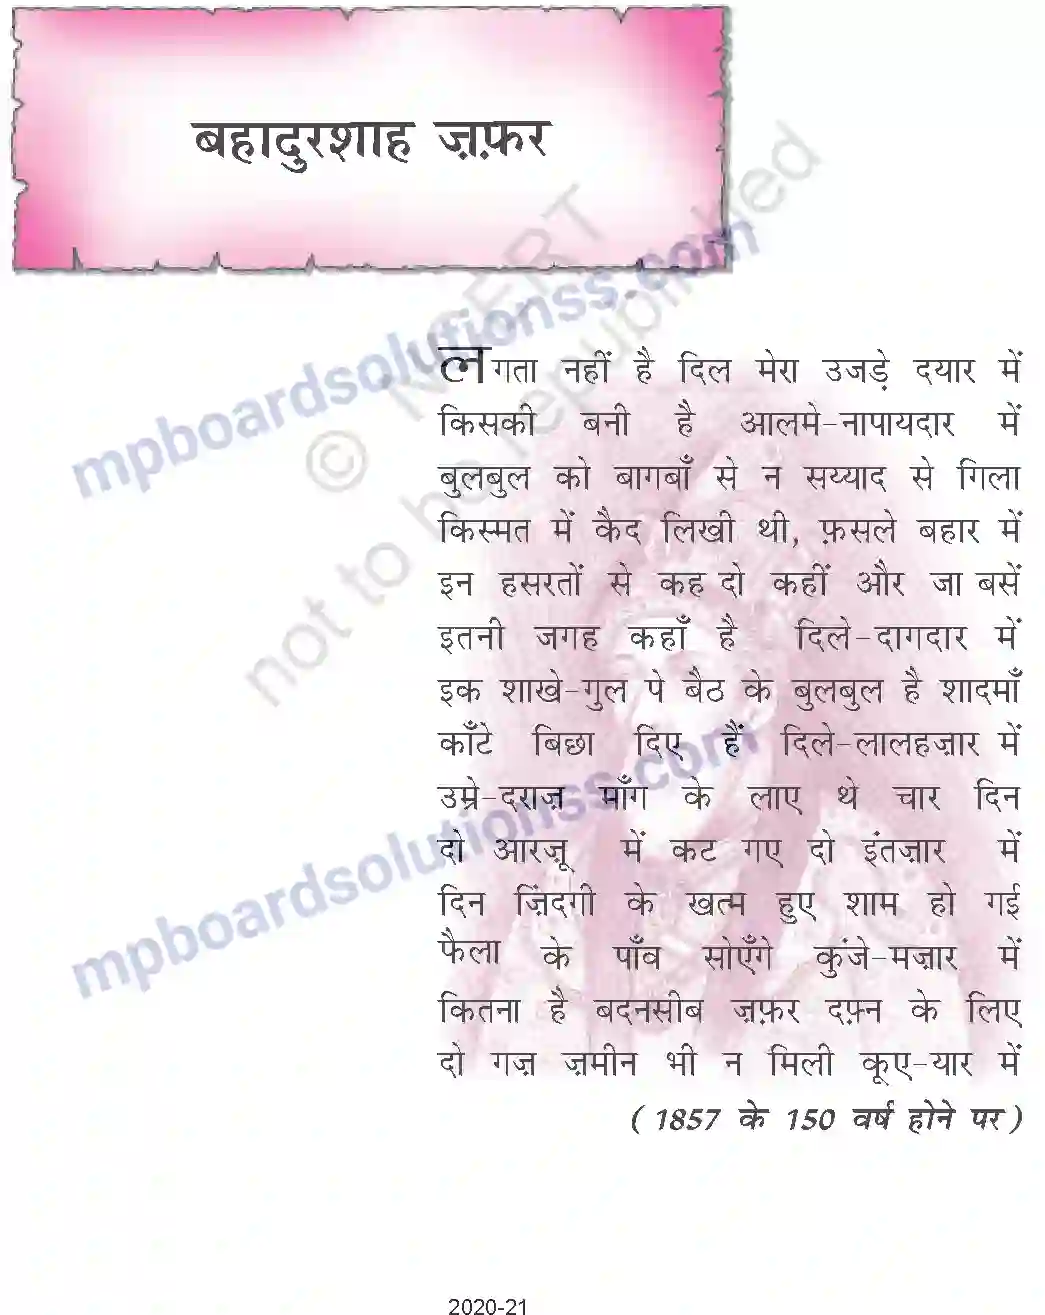 बहादुरशाह ज़फ़र
लगता नहीं है दिल मेरा उजड़े दयार में
किसकी बनी है आलमे-नापायदार में
बुलबुल को बागबाँ से न सय्याद से गिला
किस्मत में कैद लिखी थी, फ़सले बहार में
इन हसरतों से कह दो कहीं और जा बसें
इतनी जगह कहाँ है दिले-दागदार में
इक शाखे-गुल पे बैठ के बुलबुल है शादमाँ
काँटे बिछा दिए हैं दिले-लालहज़ार में
उम्रे-दराज़ माँग के लाए थे चार दिन
दो आरज़ू में कट गए दो इंतज़ार में
दिन ज़िंदगी के खत्म हुए शाम हो गई
फैला के पाँव सोएँगे कुंजे-मज़ार में
कितना है बदनसीब ज़फ़र दफ़्न के लिए
दो गज़ ज़मीन भी न मिली कूए-यार में
(1857 के 150 वर्ष होने पर)
2020-21
mpboardsolutionss.com
mpboardsolutionss.com
© NCERT
not to be republished